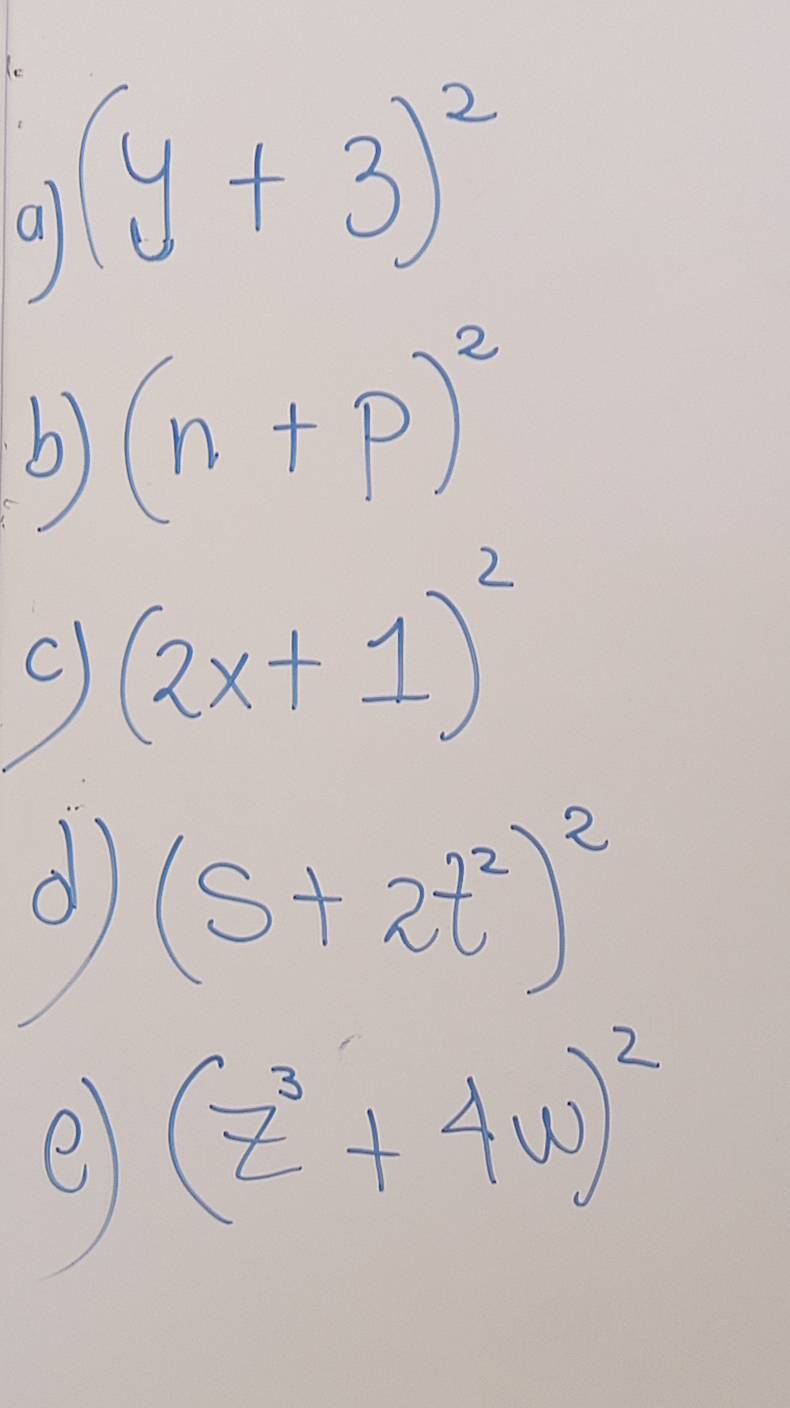 a) (y + 3)²
b) (n + p)²
c) (2x + 1)²
d) (s + 2t²)²
e) (z³ + 4w)²